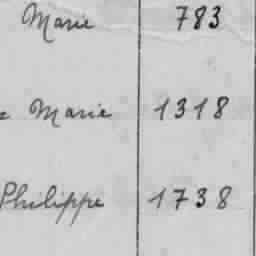 Marie 783
Marie 1318
Philippe 1738